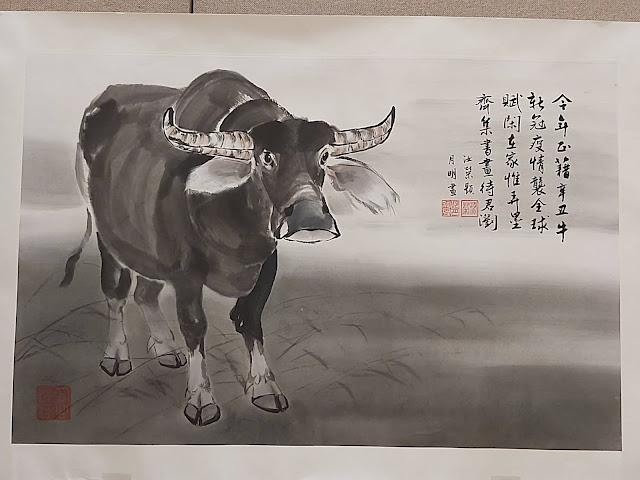 今年正藉辛丑牛
新冠疫情襲全球
賦閑在家惟弄墨
齊集書畫待君瀏
月明畫